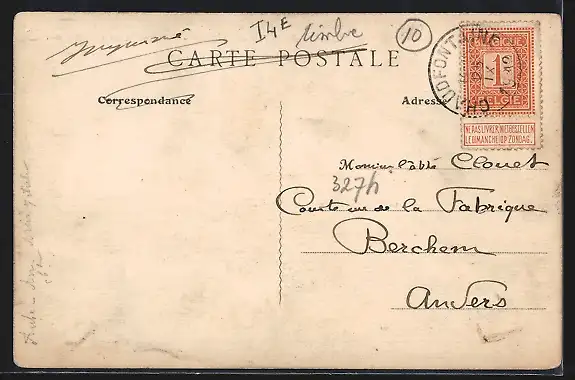 I4E timbre
10
CARTE POSTALE
Correspondance
Adresse
CHAUDFONTAINE
BELGIQUE
1
BELGIE
NE PAS LIVRER LE DIMANCHE
NIET BESTELLEN OP ZONDAG.
Monsieur l'abbé Clouet
327h
de la Fabrique
Berchem
Anvers